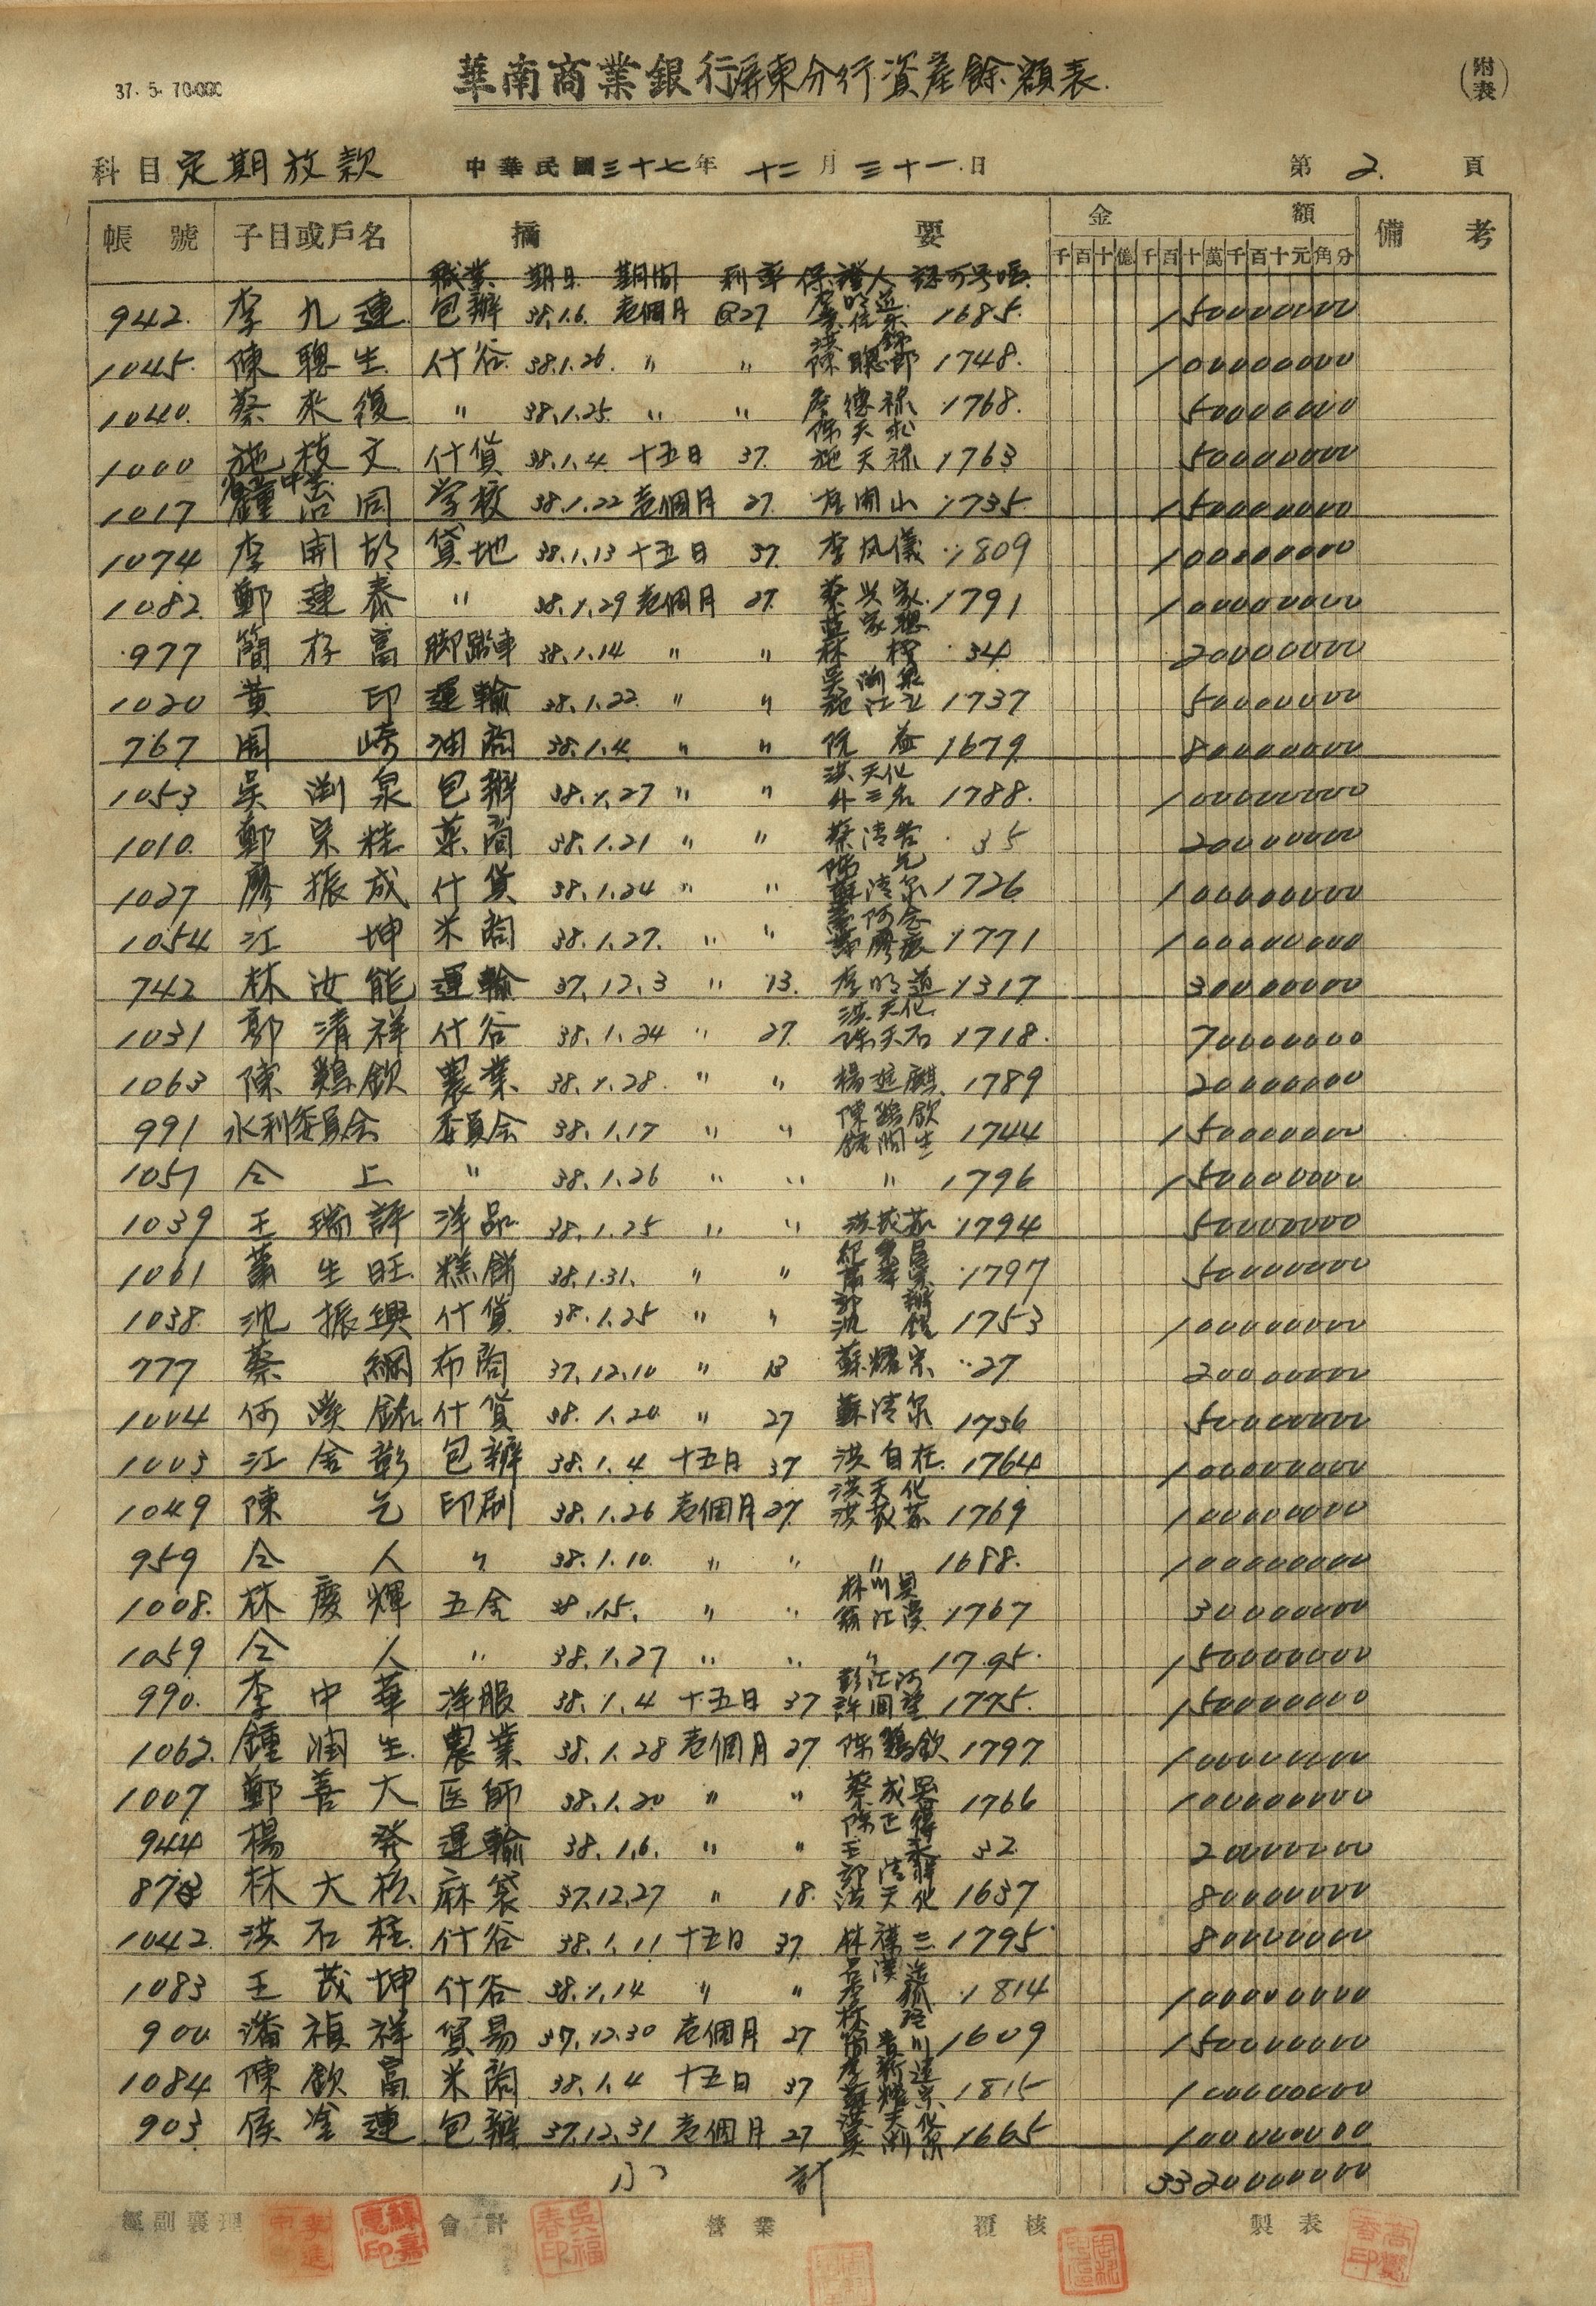 37.5.70.000
華南商業銀行屏東分行資產餘額表
(附表)
科目 定期放款 中華民國三十七年 十二月 三十一日 第 2. 頁
帳號 子目或戶名 摘要 金額 備考
千百十億千百十萬千百十元角分
職業 期日 期間 利率 保證人 認可号碼
942. 李九連 包辦 38.1.6. 壱個月 @27 1685. 150000000
1045. 陳聰生 什谷 38.1.26. 〃 〃 1748. 100000000
1040. 蔡來復 〃 38.1.25. 〃 〃 1768. 50000000
1000 施枝文 什貨 38.1.4. 十五日 37. 施天禄 1763 50000000
1017 鍾治同 学校 38.1.22 壱個月 27. 李開山 1735. 150000000
1074 李開胡 貸地 38.1.13 十五日 37. 李风儀 1809 100000000
1082. 鄭連泰 〃 38.1.29 壱個月 27. 蔡兴家 1791 100000000
977 簡存富 脚踏車 38.1.14 〃 〃 34 20000000
1020 黄印 運輸 38.1.22. 〃 〃 吳渊泉 1737 50000000
767 周崎 油商 38.1.4. 〃 〃 阮益 1679. 80000000
1053 吳渊泉 包辦 38.1.27 〃 〃 洪天化 外三名 1788. 100000000
1010. 鄭宗桂 菜商 38.1.21 〃 〃 35 20000000
1027 廖振成 什貨 38.1.24 〃 〃 蘇清泉 1726 100000000
1054 江坤 米商 38.1.27. 〃 〃 1771 100000000
742 林汝能 運輸 37.12.3 〃 13. 李明道 1317 30000000
1031 郭清祥 什谷 38.1.24 〃 27. 洪天化 陳天石 1718. 70000000
1063 陳鷄欽 農業 38.1.28. 〃 〃 楊進麒 1789 20000000
991 水利委員会 委員会 38.1.17 〃 〃 陳鷄欽 鍾潤生 1744 150000000
1057 仝上 〃 38.1.26 〃 〃 〃 1796 150000000
1039 王瑞評 洋品 38.1.25 〃 〃 1794 50000000
1061 蕭生旺 糕餅 38.1.31. 〃 〃 1797 50000000
1038. 沈振興 什貨 38.1.25 〃 〃 1753 100000000
777 蔡綢 布商 37.12.10 〃 13 蘇耀宗 27 20000000
1004 何漢銘 什貨 38.1.20. 〃 27 蘇清泉 1736 50000000
1003 江金彰 包辦 38.1.4 十五日 37 洪自在 1764 100000000
1049 陳乞 印刷 38.1.26 壱個月 27. 洪天化 1769 100000000
959 仝人 〃 38.1.10. 〃 〃 〃 1688. 100000000
1008. 林慶輝 五金 38.1.5. 〃 〃 1767 30000000
1059 仝人 〃 38.1.27 〃 〃 〃 1795. 150000000
990. 李中華 洋服 38.1.4 十五日 37 彭江河 1775. 150000000
1062. 鍾潤生 農業 38.1.28 壱個月 27 陳鷄欽 1797 100000000
1007 鄭善大 医師 38.1.20 〃 〃 1766 100000000
944 楊発 運輸 38.1.6. 〃 〃 32 20000000
873 林大松 麻袋 37.12.27 〃 18. 郭清祥 洪天化 1637 80000000
1042. 洪石柱 什谷 38.1.11 十五日 37. 1795 80000000
1083 王茂坤 什谷 38.1.14 〃 〃 1814 100000000
900 潘禎祥 貿易 37.12.30 壱個月 27 1609 150000000
1084 陳欽富 米商 38.1.4 十五日 37 蘇耀宗 1815 100000000
903 侯金連 包辦 37.12.31 壱個月 27 洪天化 吳渊泉 1665 100000000
小計 3320000000
經副襄理 會計 營業 覆核 製表